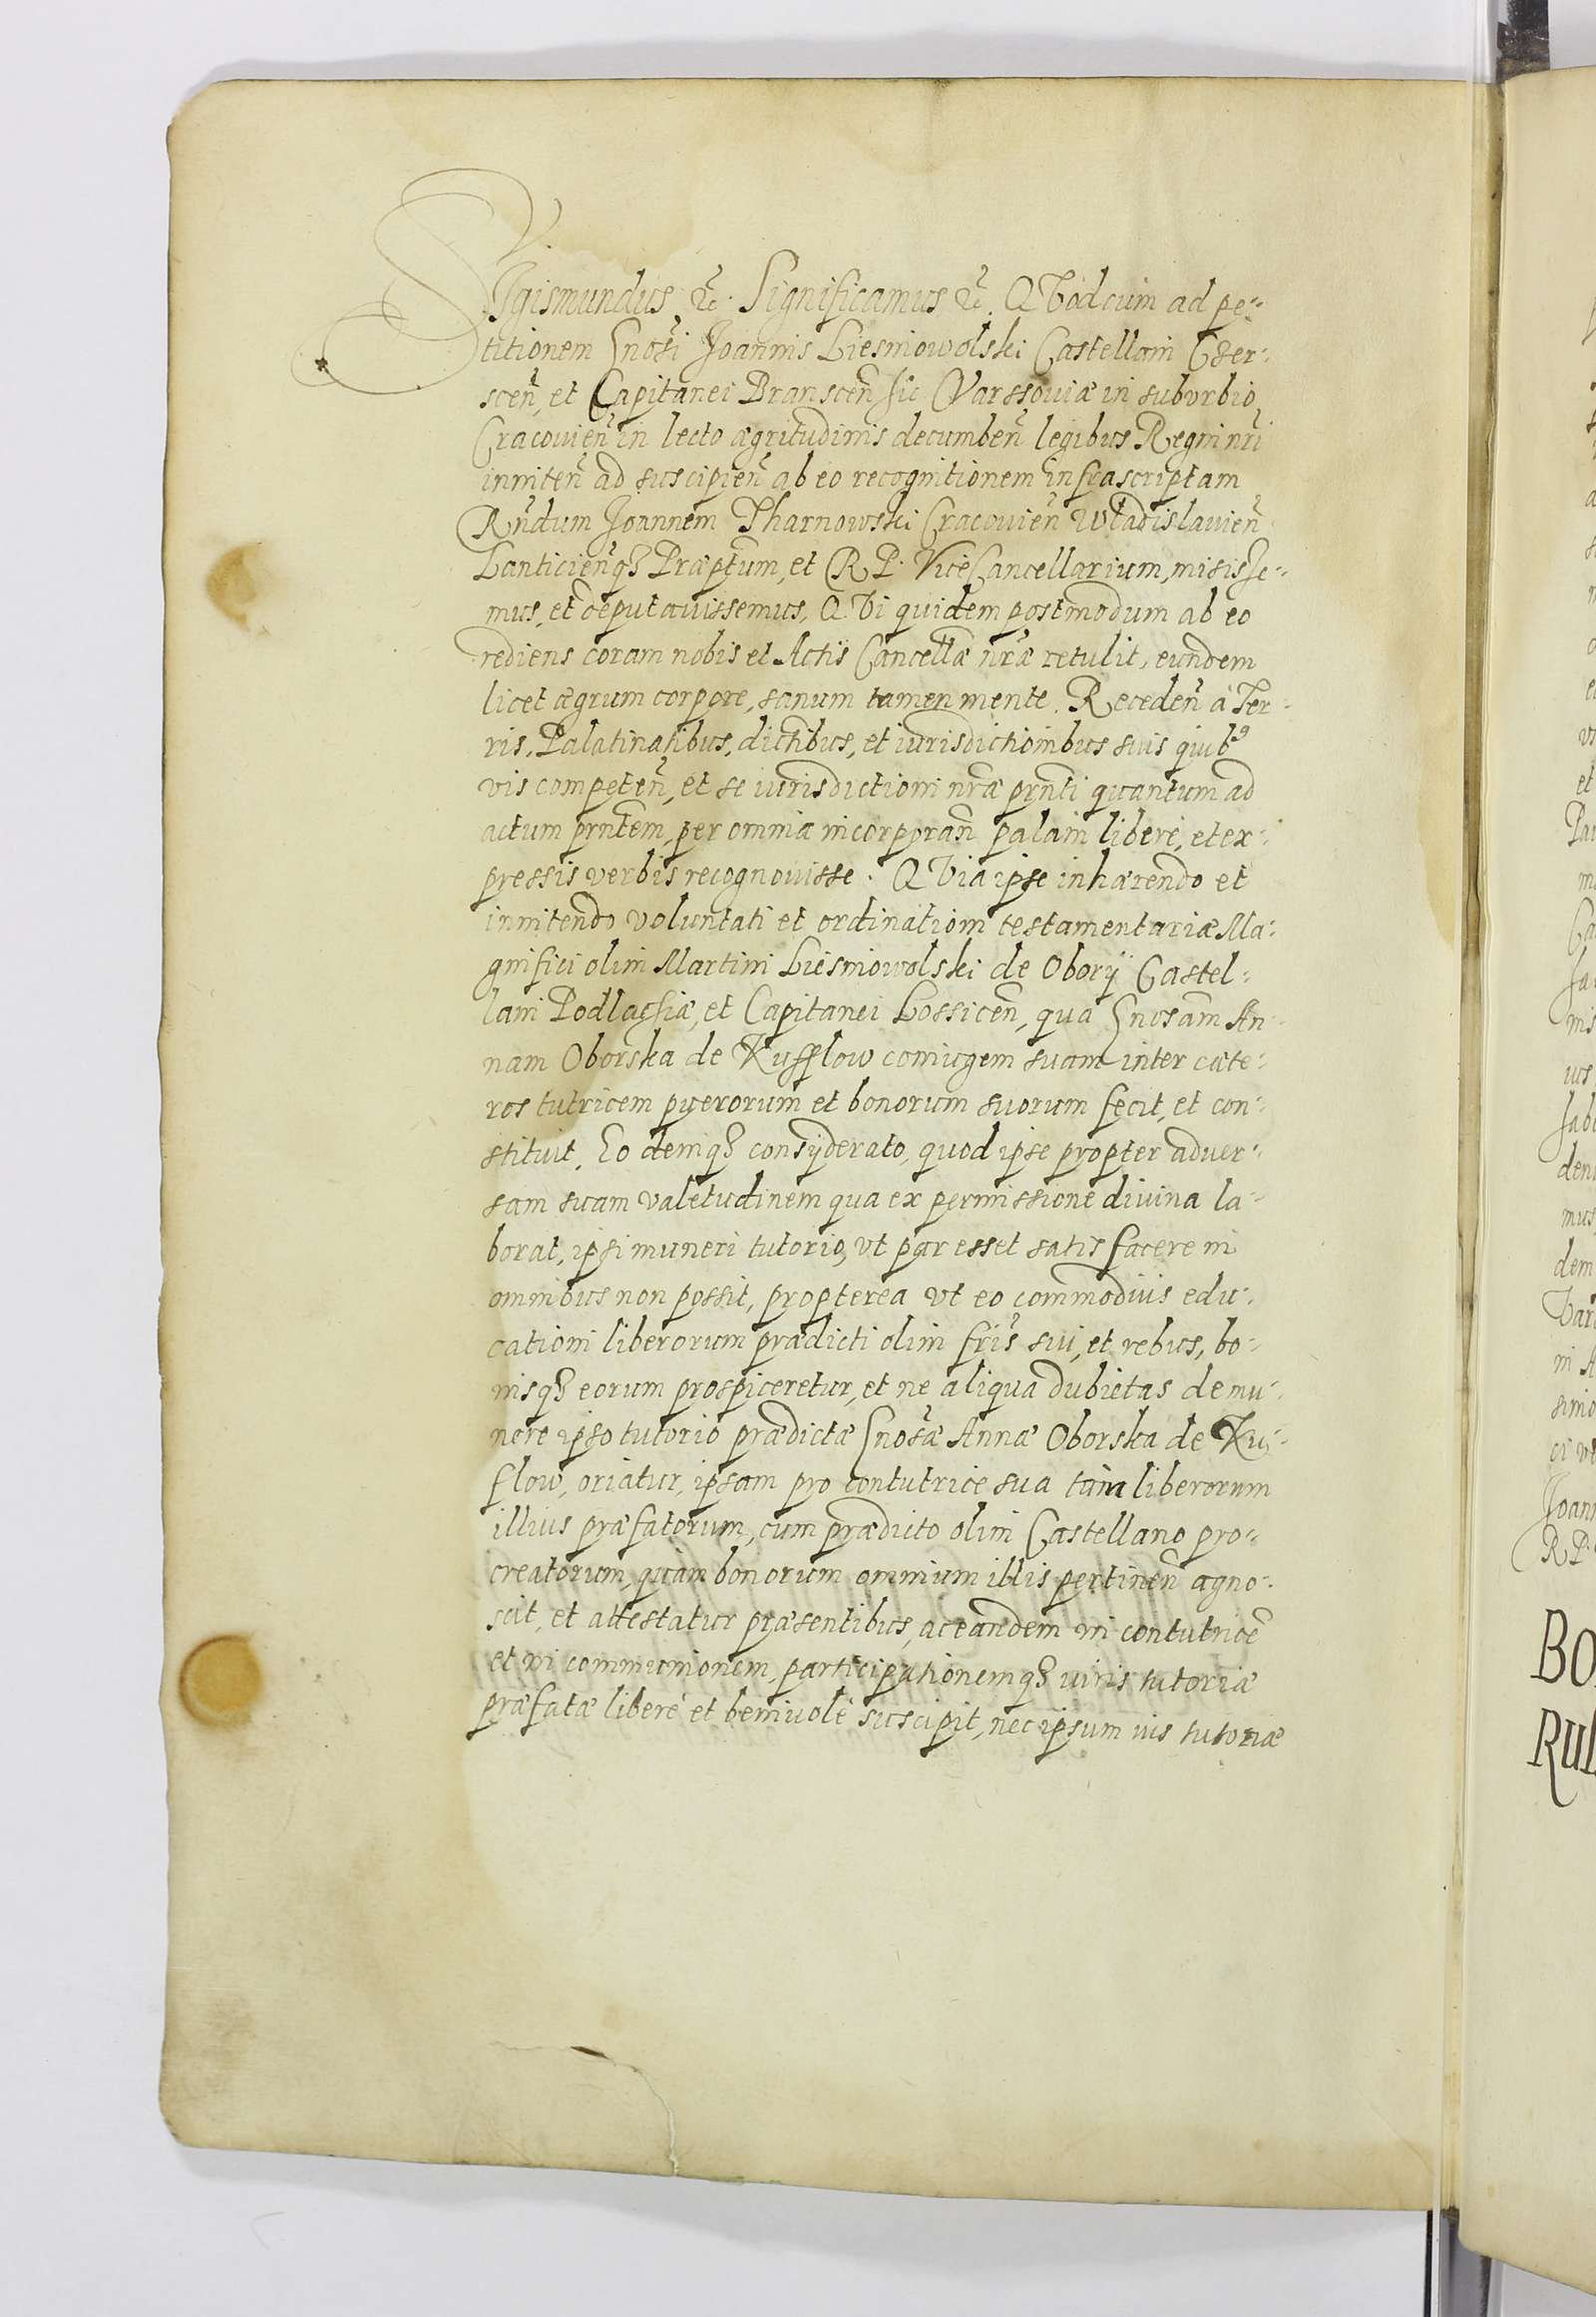 SIgismundus &c̃. Significamus &c̃. QVod cum ad pe-
titionem Gnosi Joannis Liesniowolski Castellani Czer-
sceñ, et Capitanei Bransceñ hic Varssoviæ in suburbio
Cracovieñ in lecto ægritudinis decumbeñ legibus Regni nr̃i
inniteñ ad suscipieñ ab eo recognitionem infrascriptam
Rñdum Joannem Tharnowski Cracovieñ Wladislavieñ
Lanticieñq3 Præptum, et R P. ViceCancellarium, misisse-
mus, et deputavissemus, QVi quidem postmodum ab eo
rediens coram nobis et Actis Cancellæ nr̃æ retulit, eundem
licet ægrum corpore, sanum tamen mente. Recedeñ à Ter-
ris, Palatinatibus, dictibus, et iurisdictionibus suis quib9
vis competeñ, et se iurisdictioni nr̃æ prñti quantum ad
actum prñtem, per omnia incorporañ palam liberè, et ex-
pressis verbis recognovisse. QVia ipse inhærendo et
innitendo voluntati et ordinationi testamentariæ Ma-
gnifici olim Martini Liesniowolski de Oborÿ Castel-
lani Podlachiæ, et Capitanei Lossiceñ, qua Gnosam An-
nam Oborska de Kufflow coniugem suam inter cæte-
ros tutricem puerorum et bonorum suorum fecit, et con-
stituit. Eo deniq3 consÿderato, quod ipse propter adver-
sam suam valetudinem qua ex permissione divina la-
borat, ipsi muneri tutorio, vt par esset satis facere in
omnibus non possit, propterea vt eo commodius edu-
cationi liberorum prædicti olim fr̃is sui, et rebus, bo-
nisq3 eorum prospiceretur, et ne aliqua dubietas de mu-
nere ipso tutorio prædictæ Gnosæ Annæ Oborska de Ku-
flow, oriatur, ipsam pro contutrice sua tam liberorum
illius præfatorum, cum prædicto olim Castellano pro-
creatorum, quàm bonorum omnium illis pertineñ agno-
scit, et attestatur præsentibus, ac eandem in contutricẽ
et in communionem, participationemq3 iuris tutoriæ
præfatæ liberè et benivolè suscipit, nec ipsum ius tutoriæ